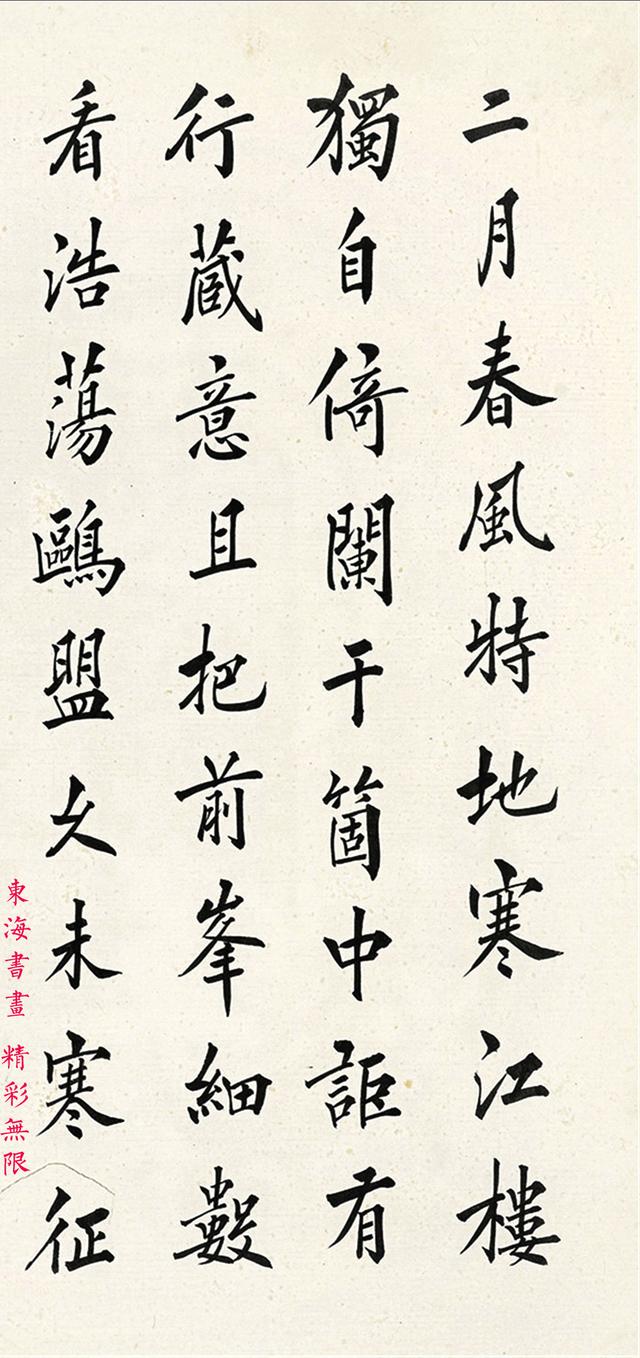 二月春風特地寒江樓
獨自倚闌干箇中詎有
行蔵意且把前峯細數
看浩蕩鷗盟久未寒征
東海書畫 精彩無限